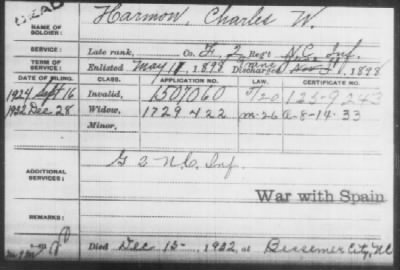 DEAD
NAME OF SOLDIER: Harmon, Charles W.
SERVICE: Late rank, Co. F, 2 Reg't N.C. Inf.
TERM OF SERVICE: Enlisted May 1, 1898 Discharged Nov 1, 1898
DATE OF FILING. CLASS. APPLICATION NO. LAW. CERTIFICATE NO.
1924 Sept 16 Invalid, 1507060 5/20 123-9243
1932 Dec 28 Widow, 1729422 M-26 A-8-14-33
Minor,
ADDITIONAL SERVICES: G 2 N.C. Inf.
War with Spain
REMARKS:
Died Dec 15- 1932, at Bessemer City, NC